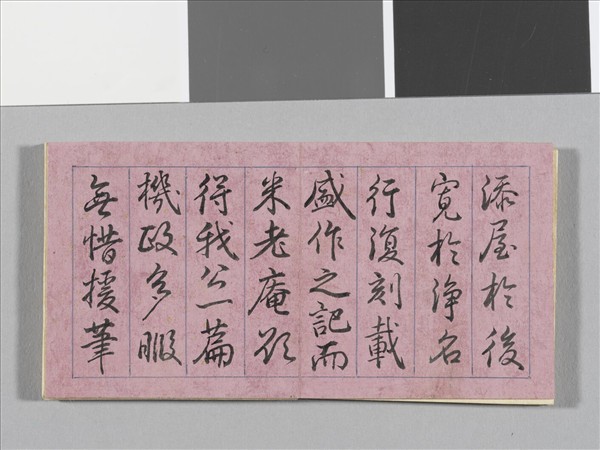 添屋於後
寬於淨名
行復刻載
盛作之記而
米老庵欲
得我公一篇
機政多暇
無惜援筆